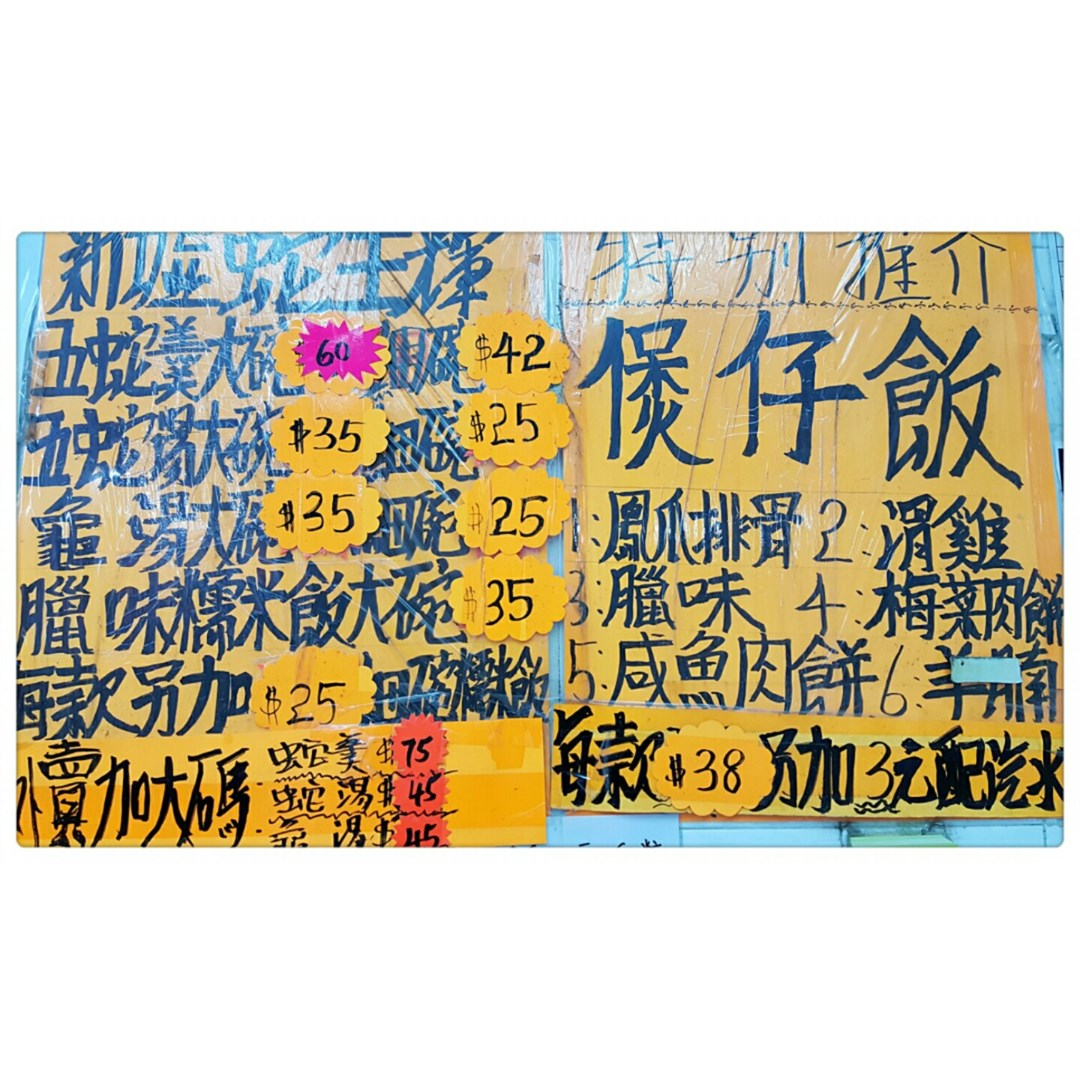 新墟蛇王輝
五蛇羹大碗 60 細碗 $42
五蛇湯大碗 $35 細碗 $25
龜湯大碗 $35 細碗 $25
臘味糯米飯大碗 $35
每款另加 $25 細碗糯米飯
外賣加大碼
蛇羹 $75
蛇湯 $45
湯 $45
特別推介
煲仔飯
1:鳳爪排骨 2:滑雞
3:臘味 4:梅菜肉餅
5:咸魚肉餅 6:羊腩
每款 $38 另加3元配汽水